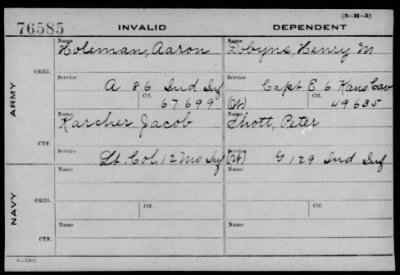 (3-H-3)
76585 INVALID DEPENDENT
ARMY
ORIG.
Name Holeman, Aaron Name Dobyns, Henry M
Service A 86 Ind Inf Service Capt E, 6 Kans Cav
Ctf. 67699 (W) Ctf. 49635
CTF.
Name Karcher, Jacob Name Shott, Peter
Service Lt. Col. 12 Mo Inf Service (W) G 129 Ind Inf
NAVY
ORIG.
Name Name
Service Ctf. Service Ctf.
CTF.
Name Name
Service Service